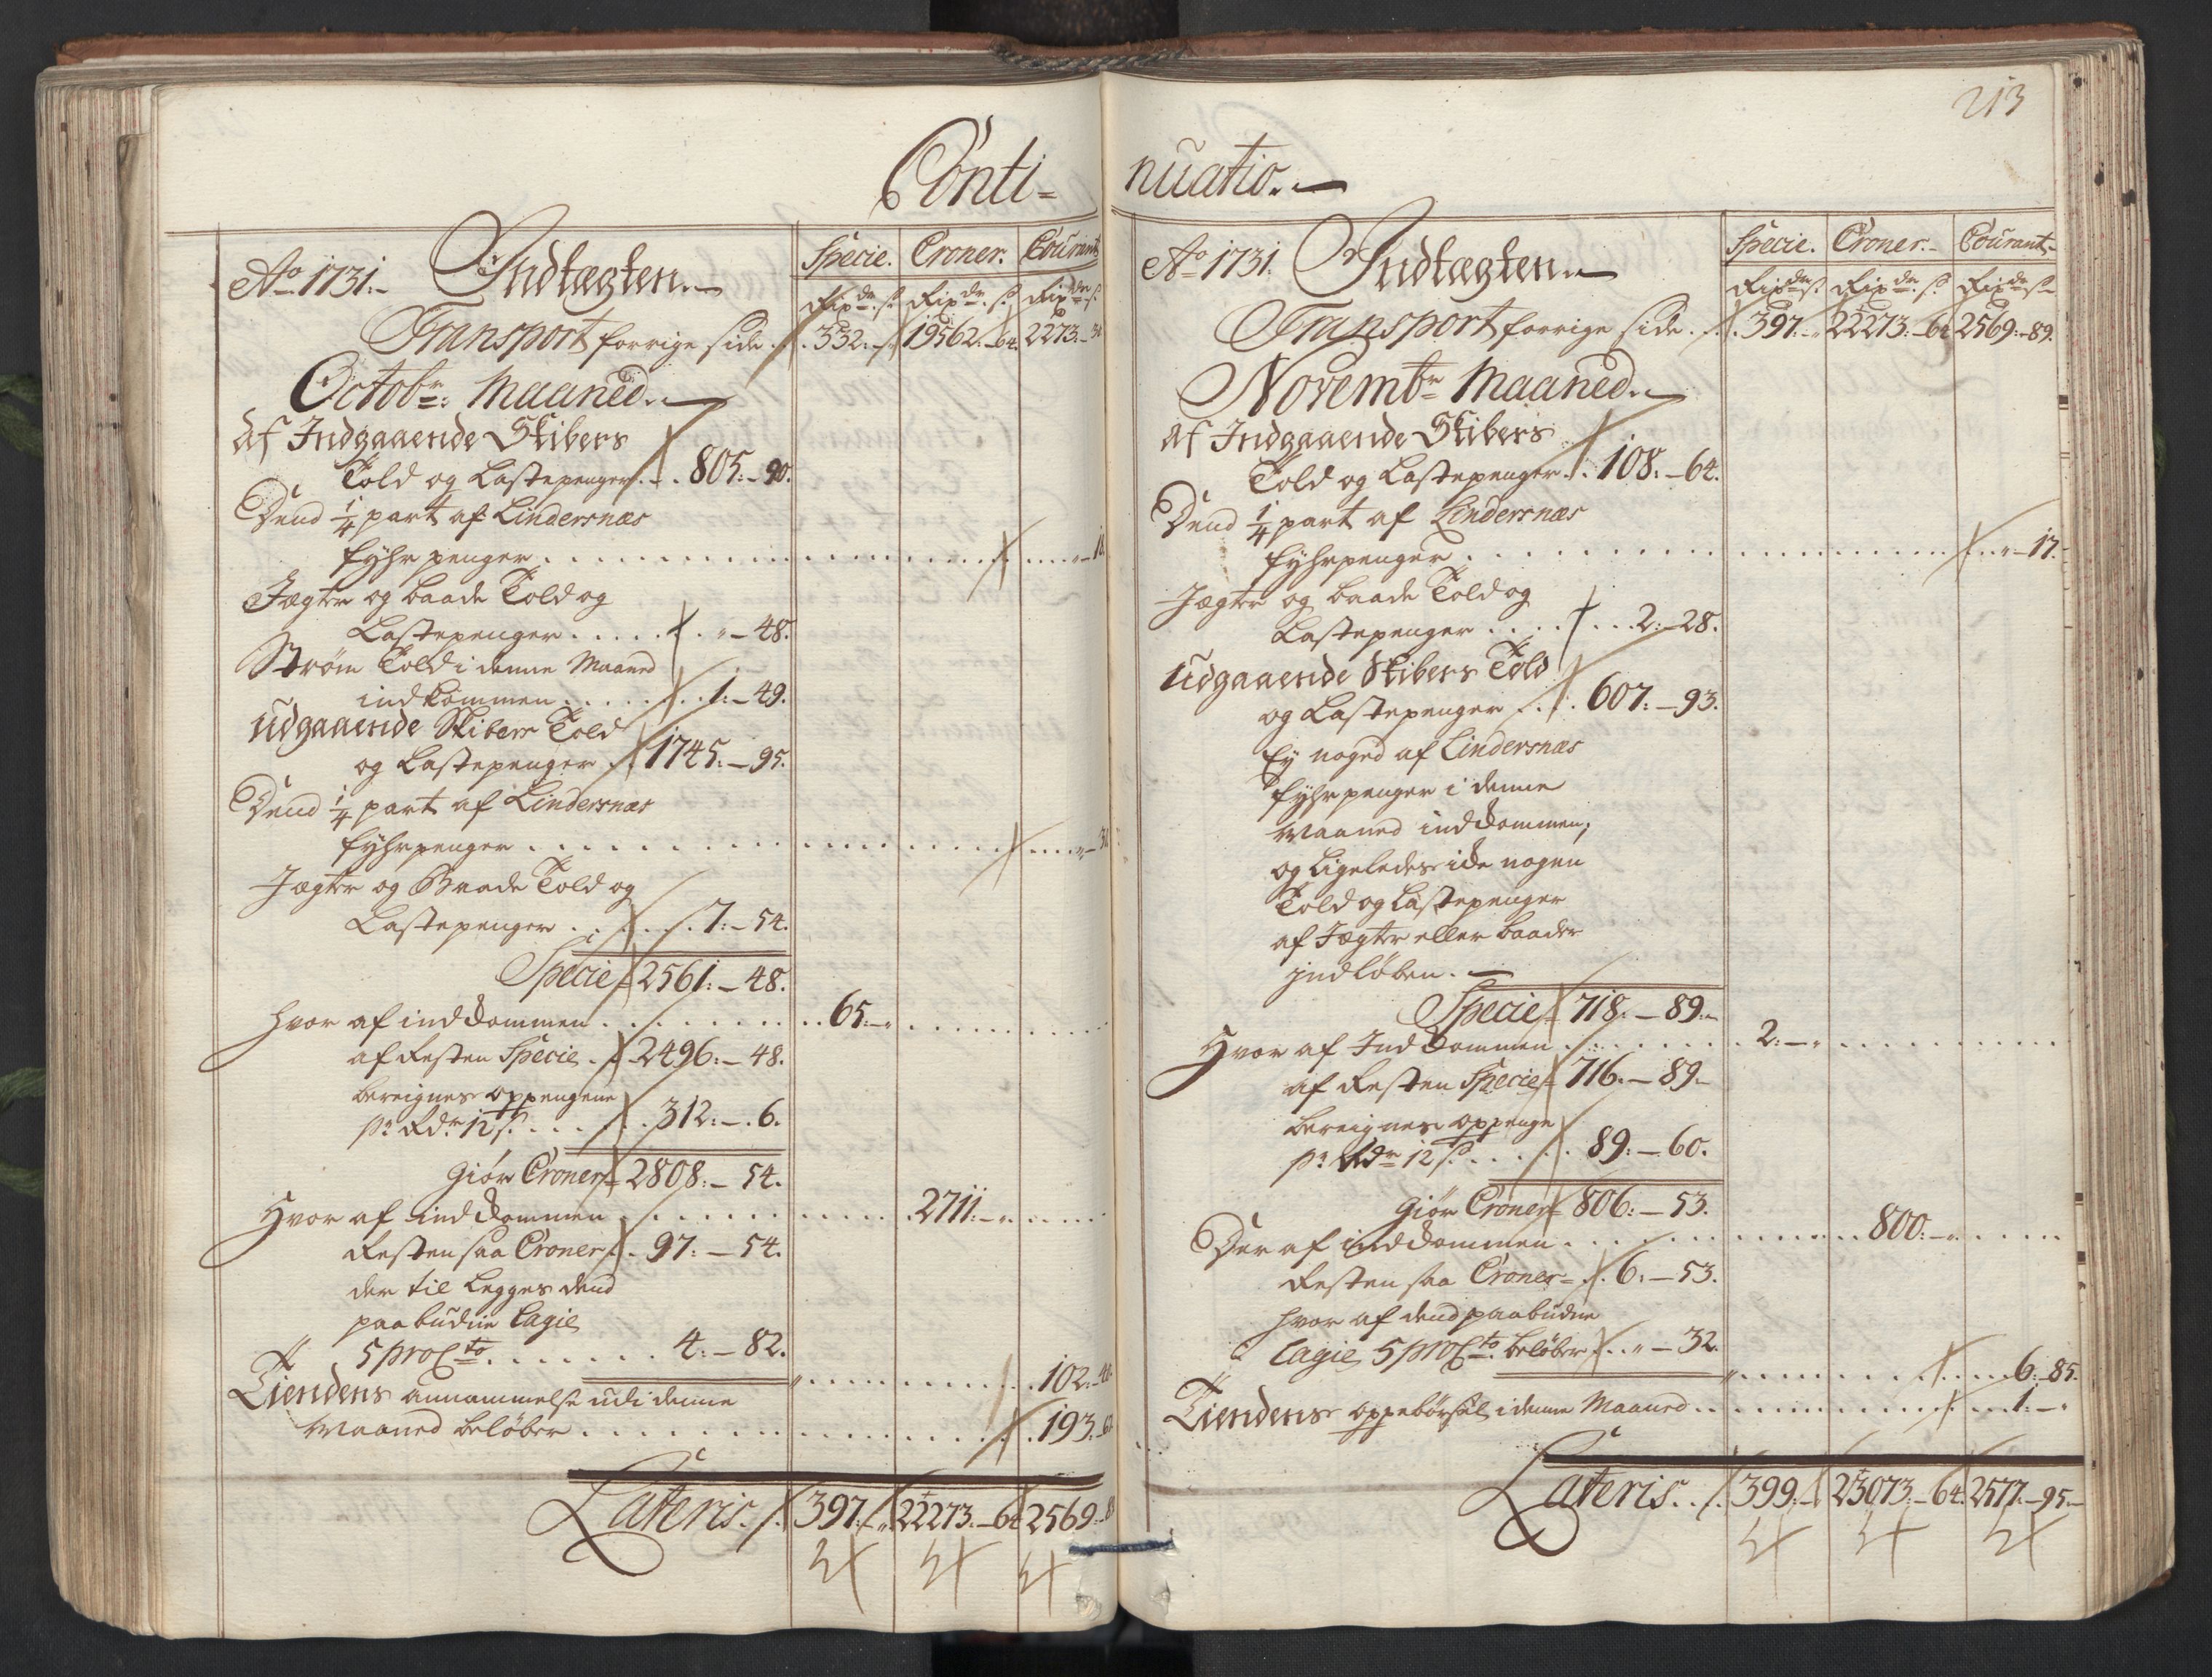 213
Conti-
nuatio.
Ao 1731. Indtægten.
Specie. Croner. Courant
Rixdr. s. Rixdr. s. Rixdr. s.
Transport forrige side . 332:-" 19562:-64. 2273:-
Octobr: Maaned.
Af Indgaaende Skibers
Told og Lastepenger . . 805:-90.
Dend 1/4 part af Lindersnæs
fyhr penger . . . . "-
Jægter og baade Told og
Lastepenger . . . . . "-48.
Strøm Told i denne Maaned
indkommen . . . . . 1:-49.
Udgaaende Skibers Told
og Lastepenger . 1745:-95.
Dend 1/4 part af Lindersnæs
fyhrpenger . . . . "-
Jægter og Baade Told og
Lastepenger . . . . . 7:-54.
Specie 2561:-48.
Hvor af indkommen . . . . 65:-"
af Resten Specie . 2496:-48.
bereignes oppengene
pr Rdr 12 s. . . . . 312:-.6.
Giør Croner 2808:-54.
Hvor af indkommen . . . . 2711:-"
Resten saa Croner . 97:-54.
der til Legges dend
paabudne Lagie
5 proCto . . . . . 4:-82.
" . . . . 102:-40
Tiendens annammelse udi denne
Maaned beløber . . . . 193:-
Lateris. /. 397:-". 22273:-64. 2569:-
Ao 1731. Indtægten.
Specie. Croner. Courant
Rixdr s. Rixdr. s. Rixdr s.
Transport forrige side . 397:-" 22273:-64 2569:-89.
Novembr Maaned.
Af Indgaaende Skibers
Told og Lastepenger . . 108:-64.
Dend 1/4 part af Lindersnæs
fyhrpenger . . . . "-17.
Jægter og baade Told og
Lastepenger . . . . . 2:-28.
Udgaaende Skibers Told
og Lastepenger . . 607:-93.
Ey noged af Lindersnæs
fyhrpenger i denne
Maaned indkommen;
og Ligeledes ide nogen
Told og Lastepenger
af Jægter eller baader
indløben.
Specie 718:-89.
Hvor af Indkommen . . . . 2:-"
af Resten Specie 716:-89.
bereignes oppenge
pr Rdr 12 s. . . . . 89:-60.
Giør Croner 806:-53.
Der af indkommen . . . . 800:-"
Resten saa Croner . 6:-53.
Hvor af dend paabudne
Lagie 5 proCto beløber . . "-32.
" . . . . 6:-85.
Tiendens oppebørsel i denne Maaned . . . . 1:-"
Lateris. /. 399:- 23073:-64. 2577:-95.